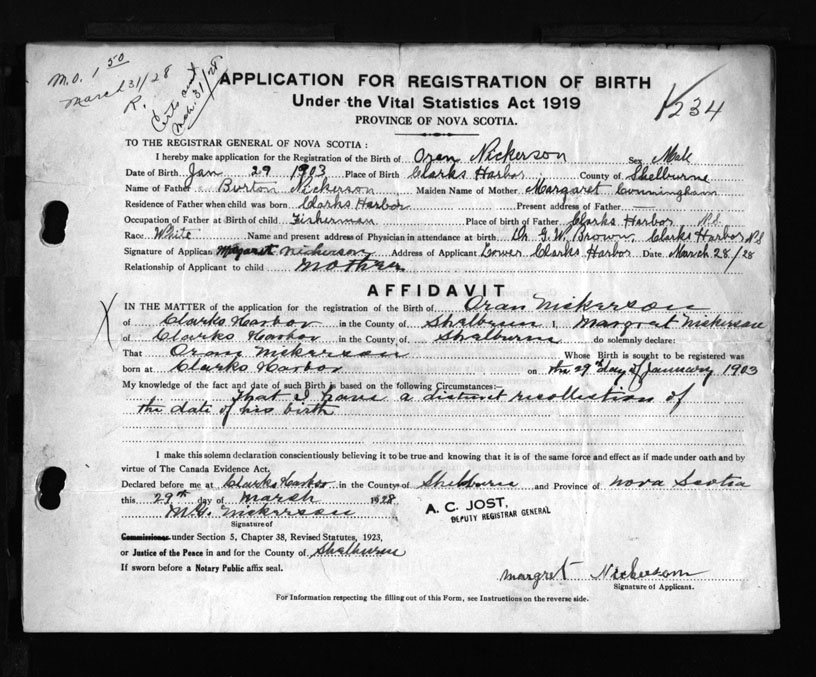 M.O. 1 50
March 31/28
R.
Certs sent
Mch. 31/28
1234
APPLICATION FOR REGISTRATION OF BIRTH
Under the Vital Statistics Act 1919
PROVINCE OF NOVA SCOTIA.
TO THE REGISTRAR GENERAL OF NOVA SCOTIA :
I hereby make application for the Registration of the Birth of Oran Nickerson Sex Male
Date of Birth Jan 29 1903 Place of Birth Clarks Harbor County of Shelburne
Name of Father Burton Nickerson Maiden Name of Mother Margaret Cunningham
Residence of Father when child was born Clarks Harbor Present address of Father
Occupation of Father at Birth of child Fisherman Place of birth of Father Clarks Harbor N.S.
Race White Name and present address of Physician in attendance at birth Dr G.W. Brown, Clarks Harbor N.S
Signature of Applicant Margaret Nickerson Address of Applicant Lower Clarks Harbor Date March 28/28
Relationship of Applicant to child Mother
AFFIDAVIT
IN THE MATTER of the application for the registration of the Birth of Oran Nickerson
of Clarks Harbor in the County of Shelburn I, Margret Nickerson
of Clarks Harbor in the County of Shelburne do solemnly declare:
That Oran Nickerson Whose Birth is sought to be registered was
born at Clarks Harbor on the 29th day of January 1903
My knowledge of the fact and date of such Birth is based on the following Circumstances:—
That I have a distinct recollection of
the date of his birth
I make this solemn declaration conscientiously believing it to be true and knowing that it is of the same force and effect as if made under oath and by
virtue of The Canada Evidence Act.
Declared before me at Clarks Harbor in the County of Shelburn and Province of Nova Scotia
this 29th day of March 1928
M.G. Nickerson
A. C. JOST,
DEPUTY REGISTRAR GENERAL
Signature of
Commissioner under Section 5, Chapter 38, Revised Statutes, 1923,
or Justice of the Peace in and for the County of Shelburne
If sworn before a Notary Public affix seal.
Margret Nickerson
Signature of Applicant.
For Information respecting the filling out of this Form, see Instructions on the reverse side.